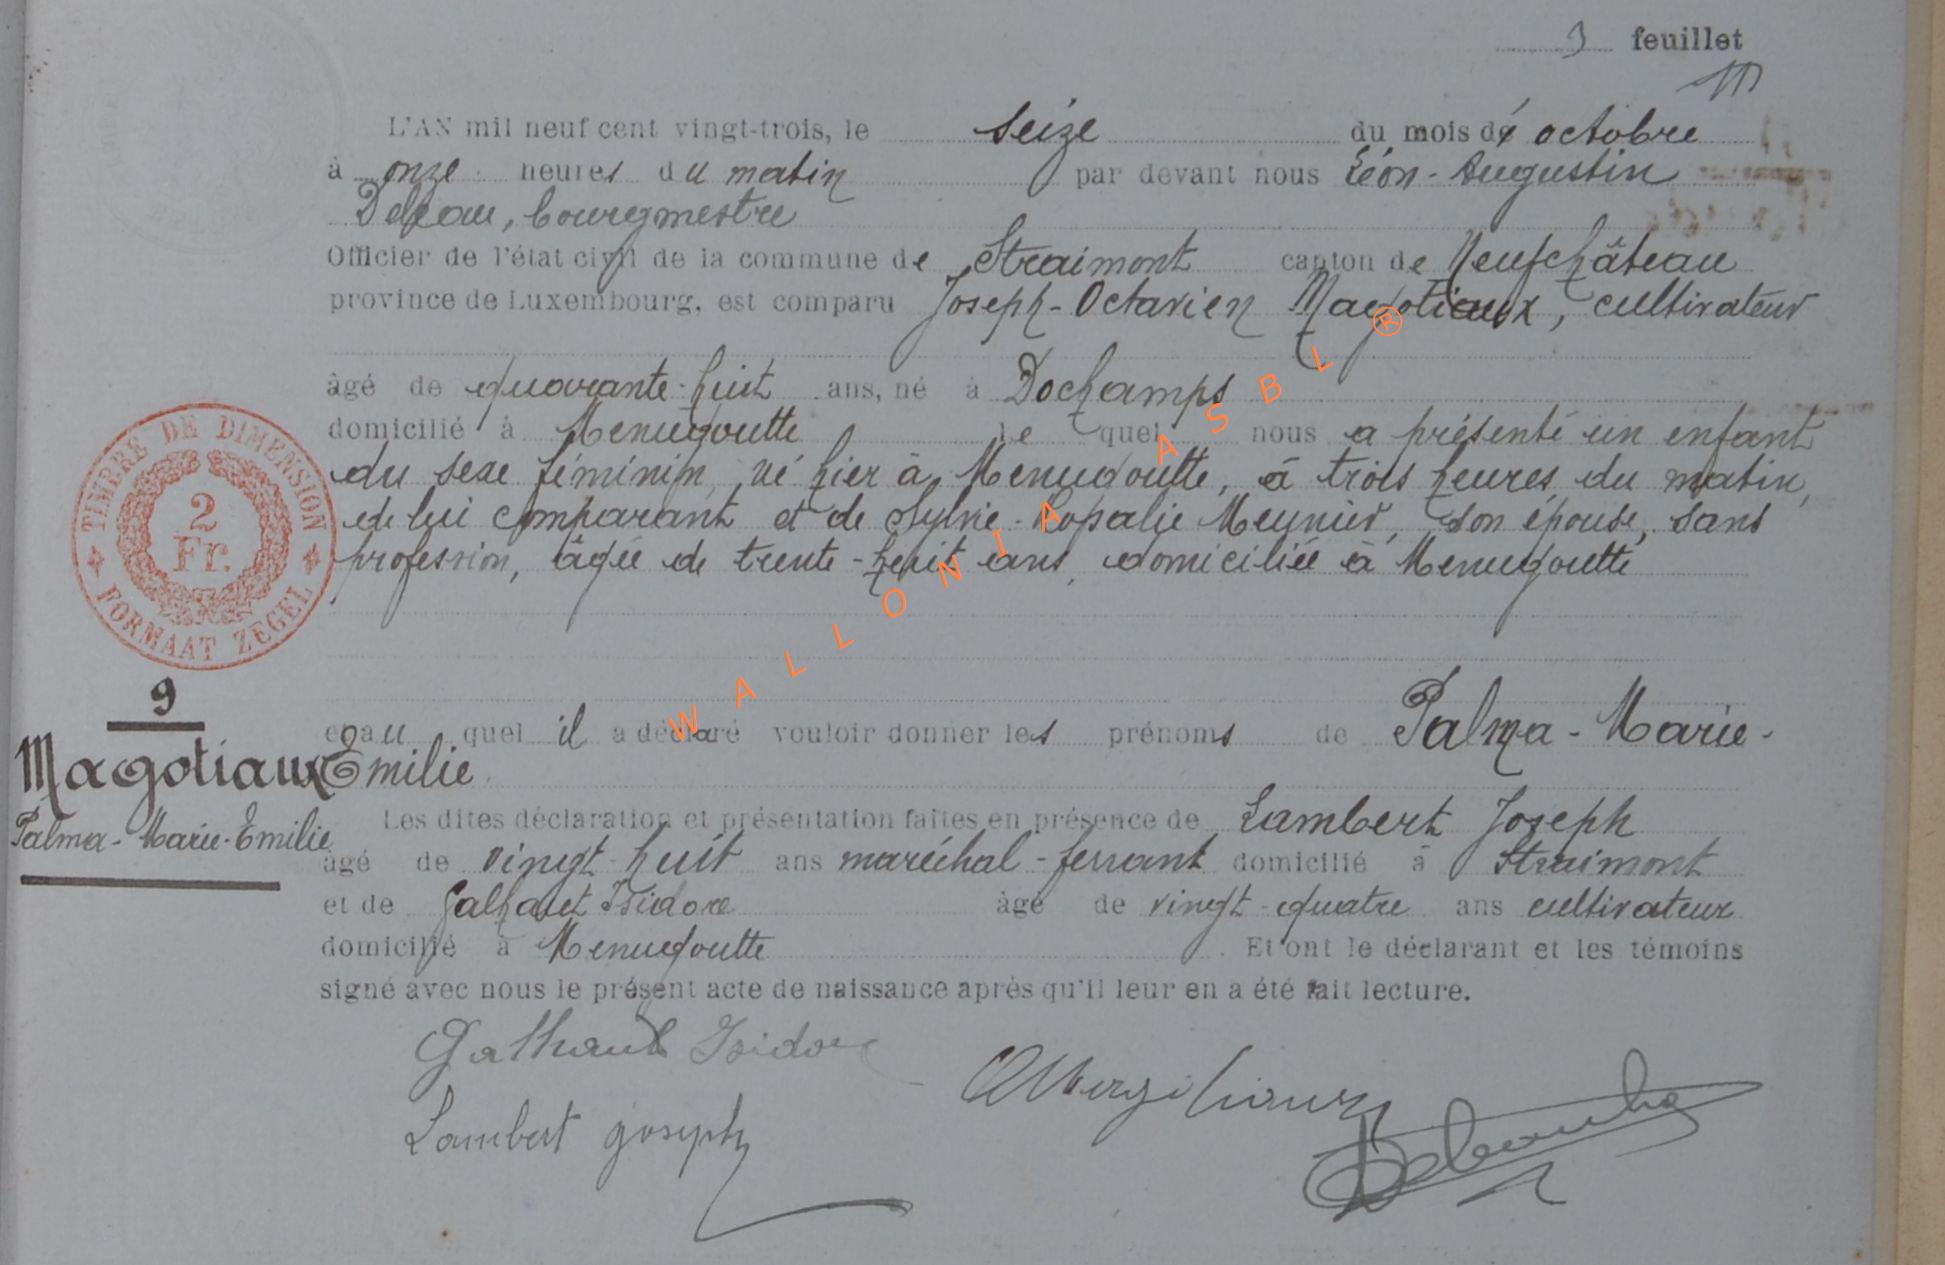 3 feuillet
L'AN mil neuf cent vingt-trois, le seize du mois d' octobre
à onze heures du matin par devant nous Léon-Augustin
bourgmestre
Officier de l'état civil de la commune de Straimont canton de Neufchâteau
province de Luxembourg, est comparu Joseph-Octavien Magotiaux, cultivateur
âgé de quarante-huit ans, né à Dochamps
domicilié à Menugoutte le quel nous a présenté un enfant
du sexe féminin, né hier à Menugoutte, à trois heures du matin,
de lui comparant et de Sylvie-Rosalie Meunier, son épouse, sans
profession, âgée de trente-huit ans, domiciliée à Menugoutte
TIMBRE DE DIMENSION
2
Fr.
FORMAAT ZEGEL
WALLONIA ASBL ®
9
Magotiaux
Palma-Marie-Emilie
et au quel il a déclaré vouloir donner les prénoms de Palma-Marie-
Emilie
Les dites déclaration et présentation faites en présence de Lambert Joseph
âgé de vingt-huit ans maréchal-ferrant domicilié à Straimont
et de Galhaut Isidore âgé de vingt-quatre ans cultivateur
domicilié à Menugoutte. Et ont le déclarant et les témoins
signé avec nous le présent acte de naissance après qu'il leur en a été fait lecture.
Galhaut Isidore
Lambert Joseph